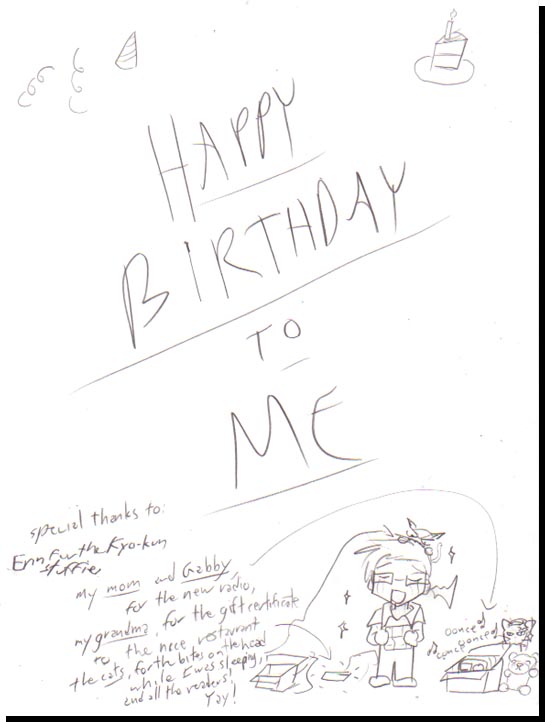 HAPPY
BIRTHDAY
TO
ME
special thanks to:
Erin, for the Kyo-kun
stuffie,
my mom and Gabby,
for the new radio,
my grandma, for the gift certificate
to the nice restaurant
the cats, for the bites on the head
while I was sleeping,
and all the readers!
Yay!
dance
dance
dance